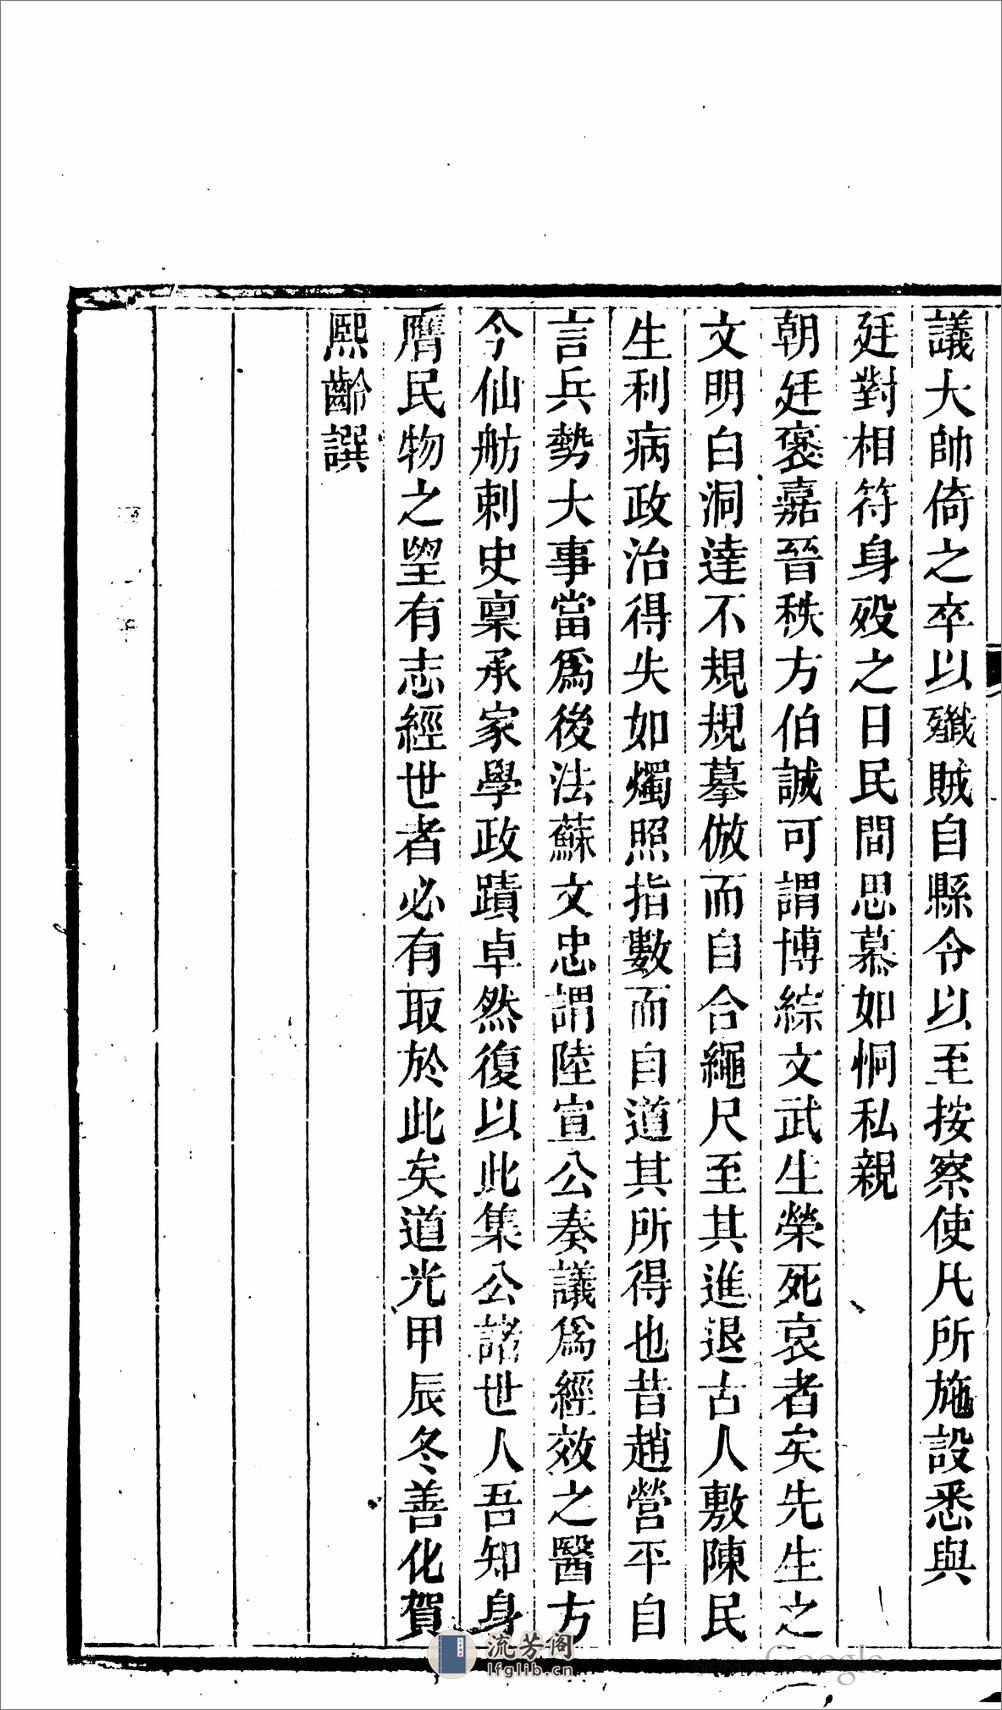 議大帥倚之卒以殲賊自縣令以至按察使凡所施設悉與
廷對相符身歿之日民間思慕如恫私親
朝廷褒嘉晉秩方伯誠可謂博綜文武生榮死哀者矣先生之
文明白洞達不規規摹倣而自合繩尺至其進退古人敷陳民
生利病政治得失如燭照指數而自道其所得也昔趙營平自
言兵勢大事當爲後法蘇文忠謂陸宣公奏議爲經效之醫方
今仙舫刺史稟承家學政蹟卓然復以此集公諸世人吾知身
膺民物之朢有志經世者必有取於此矣道光甲辰冬善化賀
熙齡譔
流芳阁
lfglib.cn
Google